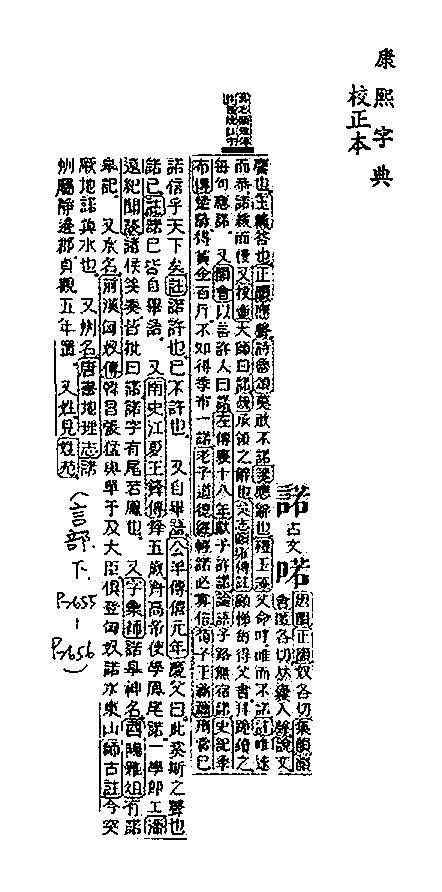 康熙字典
校正本
諾 古文 㖠 唐韻正韻奴各切集韻韻
會匿各切𠀤囊入聲說文
應也玉篇答也正韻應聲詩魯頌莫敢不諾箋應辭也禮玉藻父命呼唯而不諾註唯速
而恭諾緩而慢 又投壺大師曰諾註承領之辭也吳志顧雍傳註顧悌得父書拜跪讀之
每句應諾。 又韻會以言許人曰諾左傳襄十八年獻子許諾論語子路無宿諾史記季
布傳楚諺得黃金百斤不如得季布一諾老子道德經輕諾必寡信荀子王霸篇刑賞已
諾信乎天下矣註諾許也已不許也 又自畢語公羊傳僖元年慶父曰此奚斯之聲也
諾已註諾已皆自畢語。 又南史江夏王鋒傳鋒五歲齊高帝使學鳳尾諾一學即工潘
遠紀聞談諸侯箋奏皆批曰諾諾字有尾若鳳也。 又字彙補諾臯神名酉陽雜俎有諾
臯記。 又水名前漢匈奴傳韓昌張猛與單于及大臣俱登匈奴諾水東山師古註今突
厥地諾眞水也。 又州名唐書地理志諾
州屬靜邊都貞觀五年置。 又姓見姓苑
(言部.下. P.655 - P.656)